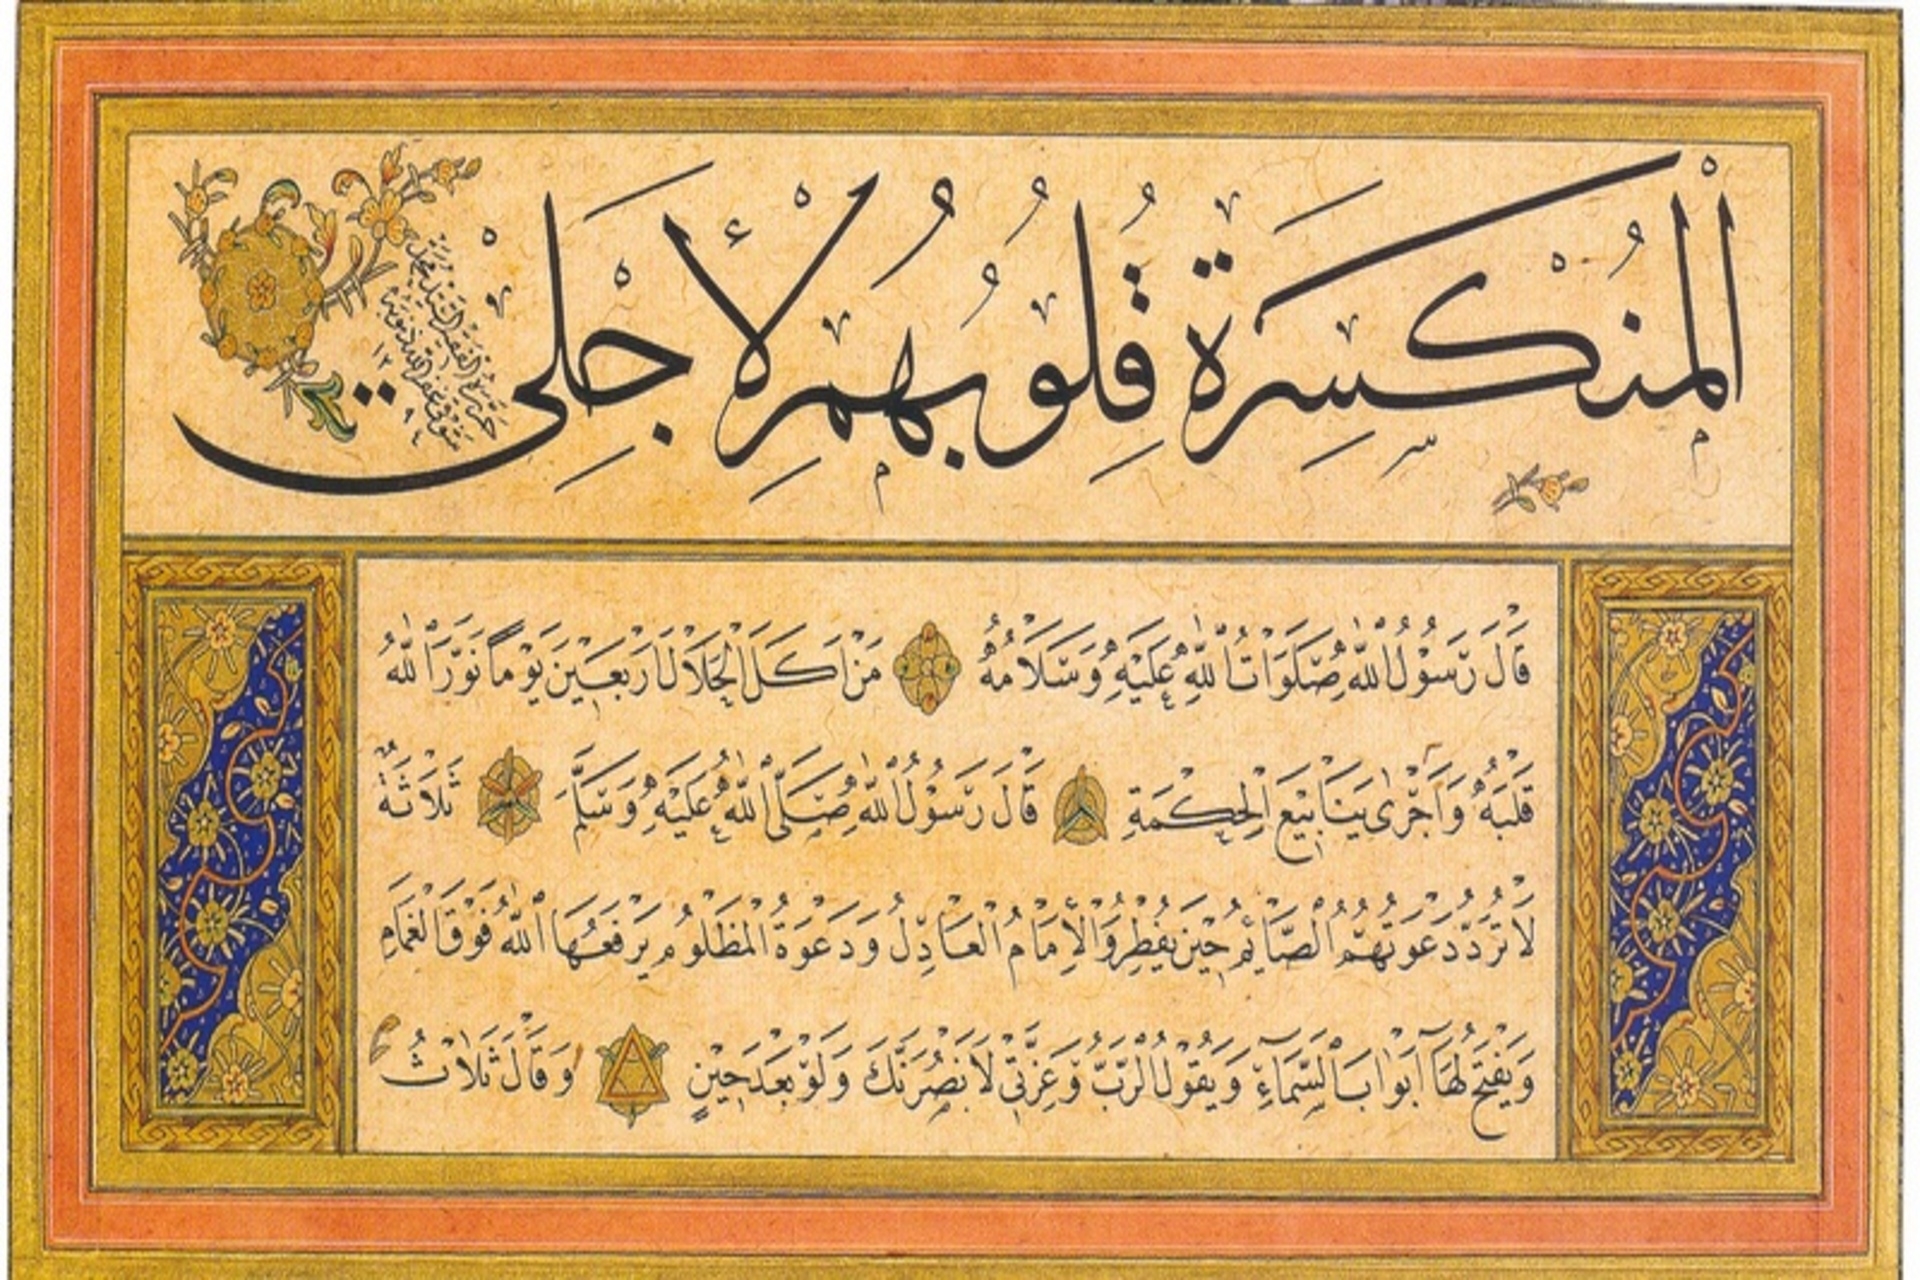 اَلْمُنْكَسِرَةِ قُلُوبُهُمْ لِأَجْلِي
حرره الفقير
شوقي غفر الله ذنوبه
قَالَ رَسُوْلُ اللّٰهِ صَلَوَاتُ اللّٰهِ عَلَيْهِ وَسَلَامُهُ مَنْ اَكَلَ الْحَلَالَ اَرْبَعِيْنَ يَوْمًا نَوَّرَ اللّٰهُ
قَلْبَهُ وَاَجْرٰى يَنَابِيْعَ الْحِكْمَةِ قَالَ رَسُوْلُ اللّٰهِ صَلَّى اللّٰهُ عَلَيْهِ وَسَلَّمَ ثَلَاثَةٌ
لَا تُرَدُّ دَعْوَتُهُمُ الصَّائِمُ حِيْنَ يُفْطِرُ وَالْاِمَامُ الْعَادِلُ وَدَعْوَةُ الْمَظْلُومِ يَرْفَعُهَا اللّٰهُ فَوْقَ الْغَمَامِ
وَيَفْتَحُ لَهَا اَبْوَابَ السَّمَاءِ وَيَقُوْلُ الرَّبُّ وَعِزَّتِيْ لَاَنْصُرَنَّكَ وَلَوْ بَعْدَ حِيْنٍ وَقَالَ ثَلَاثٌ